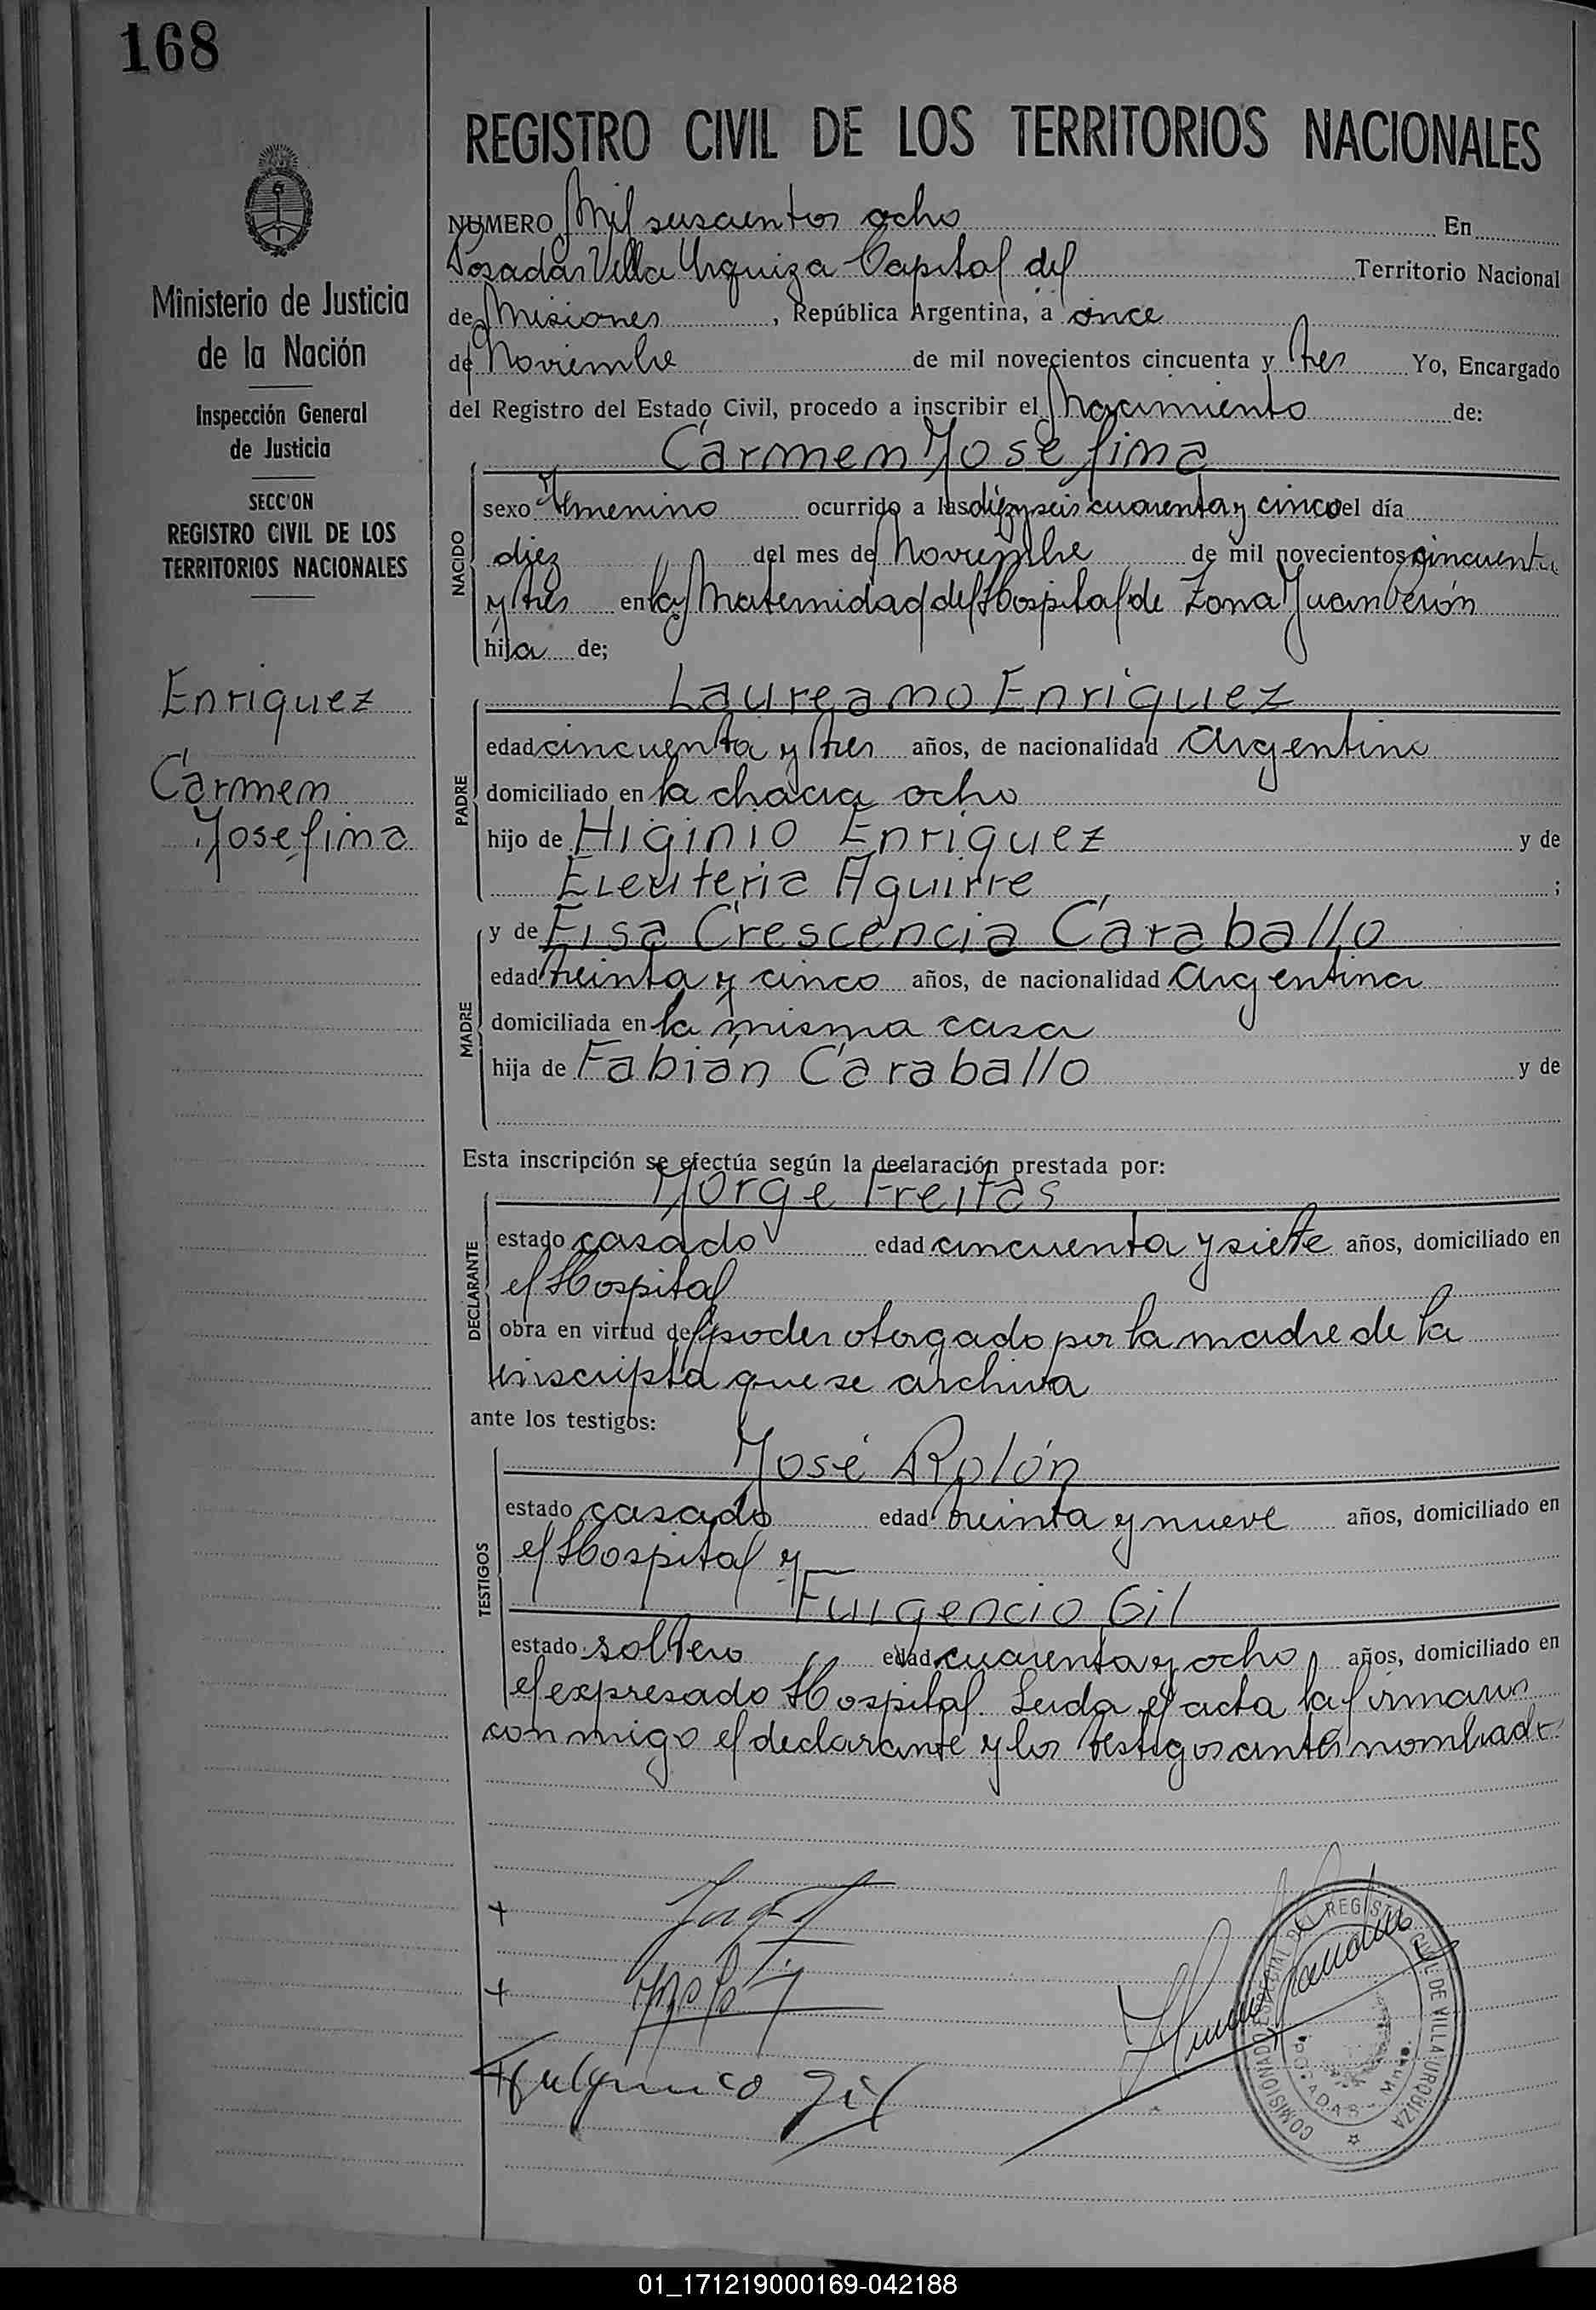 168
REGISTRO CIVIL DE LOS TERRITORIOS NACIONALES
Ministerio de Justicia
de la Nación
Inspección General
de Justicia
SECC'ON
REGISTRO CIVIL DE LOS
TERRITORIOS NACIONALES
Enriquez
Carmen
Josefina
NUMERO Mil seiscientos ocho En
Posadas Villa Urquiza Capital del Territorio Nacional
de Misiones, República Argentina, a once
de Noviembre de mil novecientos cincuenta y tres Yo, Encargado
del Registro del Estado Civil, procedo a inscribir el Nacimiento de:
Carmen Josefina
NACIDO
sexo femenino ocurrido a las diez y seis cuarenta y cinco el día
diez del mes de Noviembre de mil novecientos cincuenta
y tres en la Maternidad del Hospital de Zona Juan Perón
hija de;
PADRE
Laureano Enriquez
edad cincuenta y tres años, de nacionalidad Argentina
domiciliado en la chacra ocho
hijo de Higinio Enriquez y de
Eleuteria Aguirre ;
MADRE
y de Elsa Crescencia Caraballo
edad treinta y cinco años, de nacionalidad Argentina
domiciliada en la misma casa
hija de Fabián Caraballo y de
Esta inscripción se efectúa según la declaración prestada por:
DECLARANTE
Jorge Freitas
estado casado edad cincuenta y siete años, domiciliado en
el Hospital
obra en virtud del poder otorgado por la madre de la
inscripta que se archiva
ante los testigos:
TESTIGOS
José Rolón
estado casado edad treinta y nueve años, domiciliado en
el Hospital y
Fulgencio Gil
estado soltero edad cuarenta y ocho años, domiciliado en
el expresado Hospital. Leida el acta la firmaron
conmigo el declarante y los testigos antes nombrados
Fulgencio Gil
COMISIONADO ESPECIAL DEL REGISTRO CIVIL DE VILLA URQUIZA
POSADAS - Mnes.
01_171219000169-042188